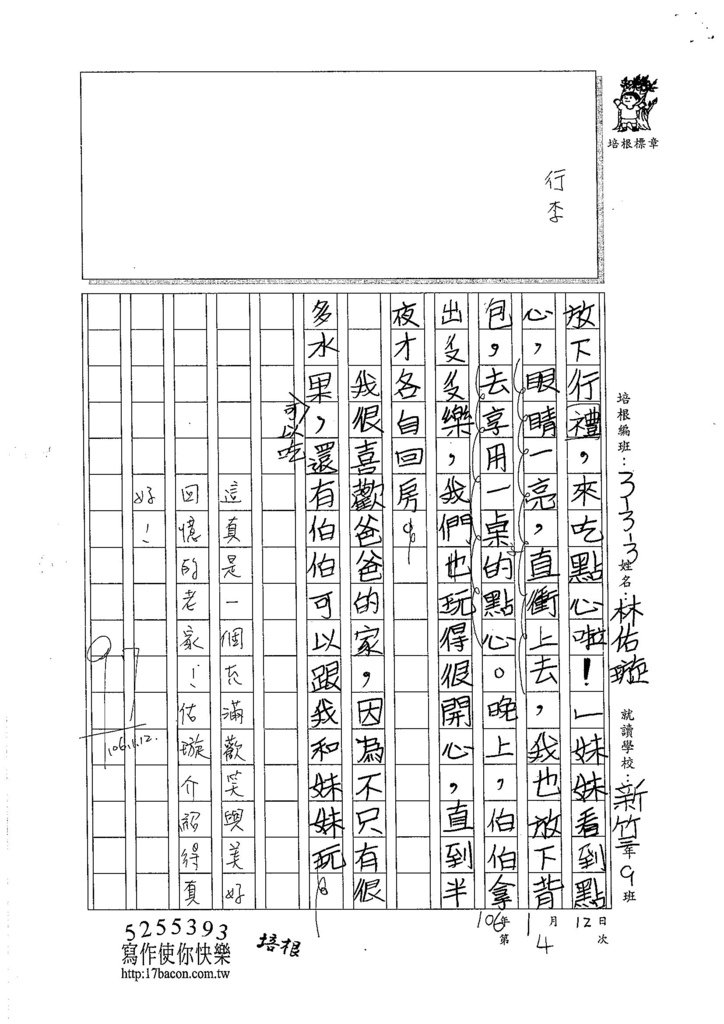 培根標章
行李
培根編班：3-3-3 姓名：林佑璇 就讀學校：新竹三年9班
106年1月12日
第4次
放下行禮，來吃點心啦！」妹妹看到點
心，眼睛一亮，直衝上去，我也放下背
包，去享用一桌的點心。晚上，伯伯拿
出爻爻樂，我們也玩得很開心，直到半
夜才各自回房。
我很喜歡爸爸的家，因為不只有很
多水果，還有伯伯可以跟我和妹妹玩。
可以吃
這真是一個充滿歡笑與美好
回憶的老家！佑璇介紹得真
好！
97
106.1.12.
5255393
寫作使你快樂
http:17bacon.com.tw
培根